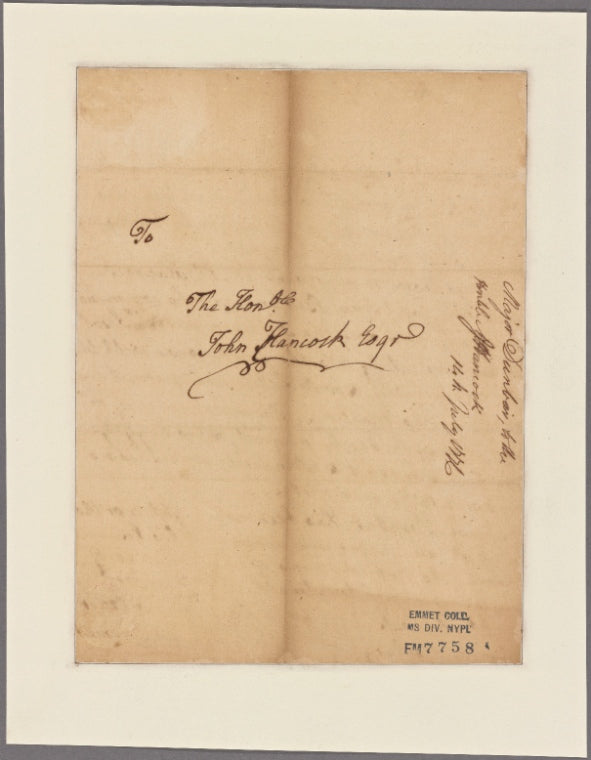 To
The Honble
John Hancock Esqr
Major Dunbar, to the
Honble J Hancock
14th July 1776
EMMET COLL.
MS DIV. NYPL
EM7758